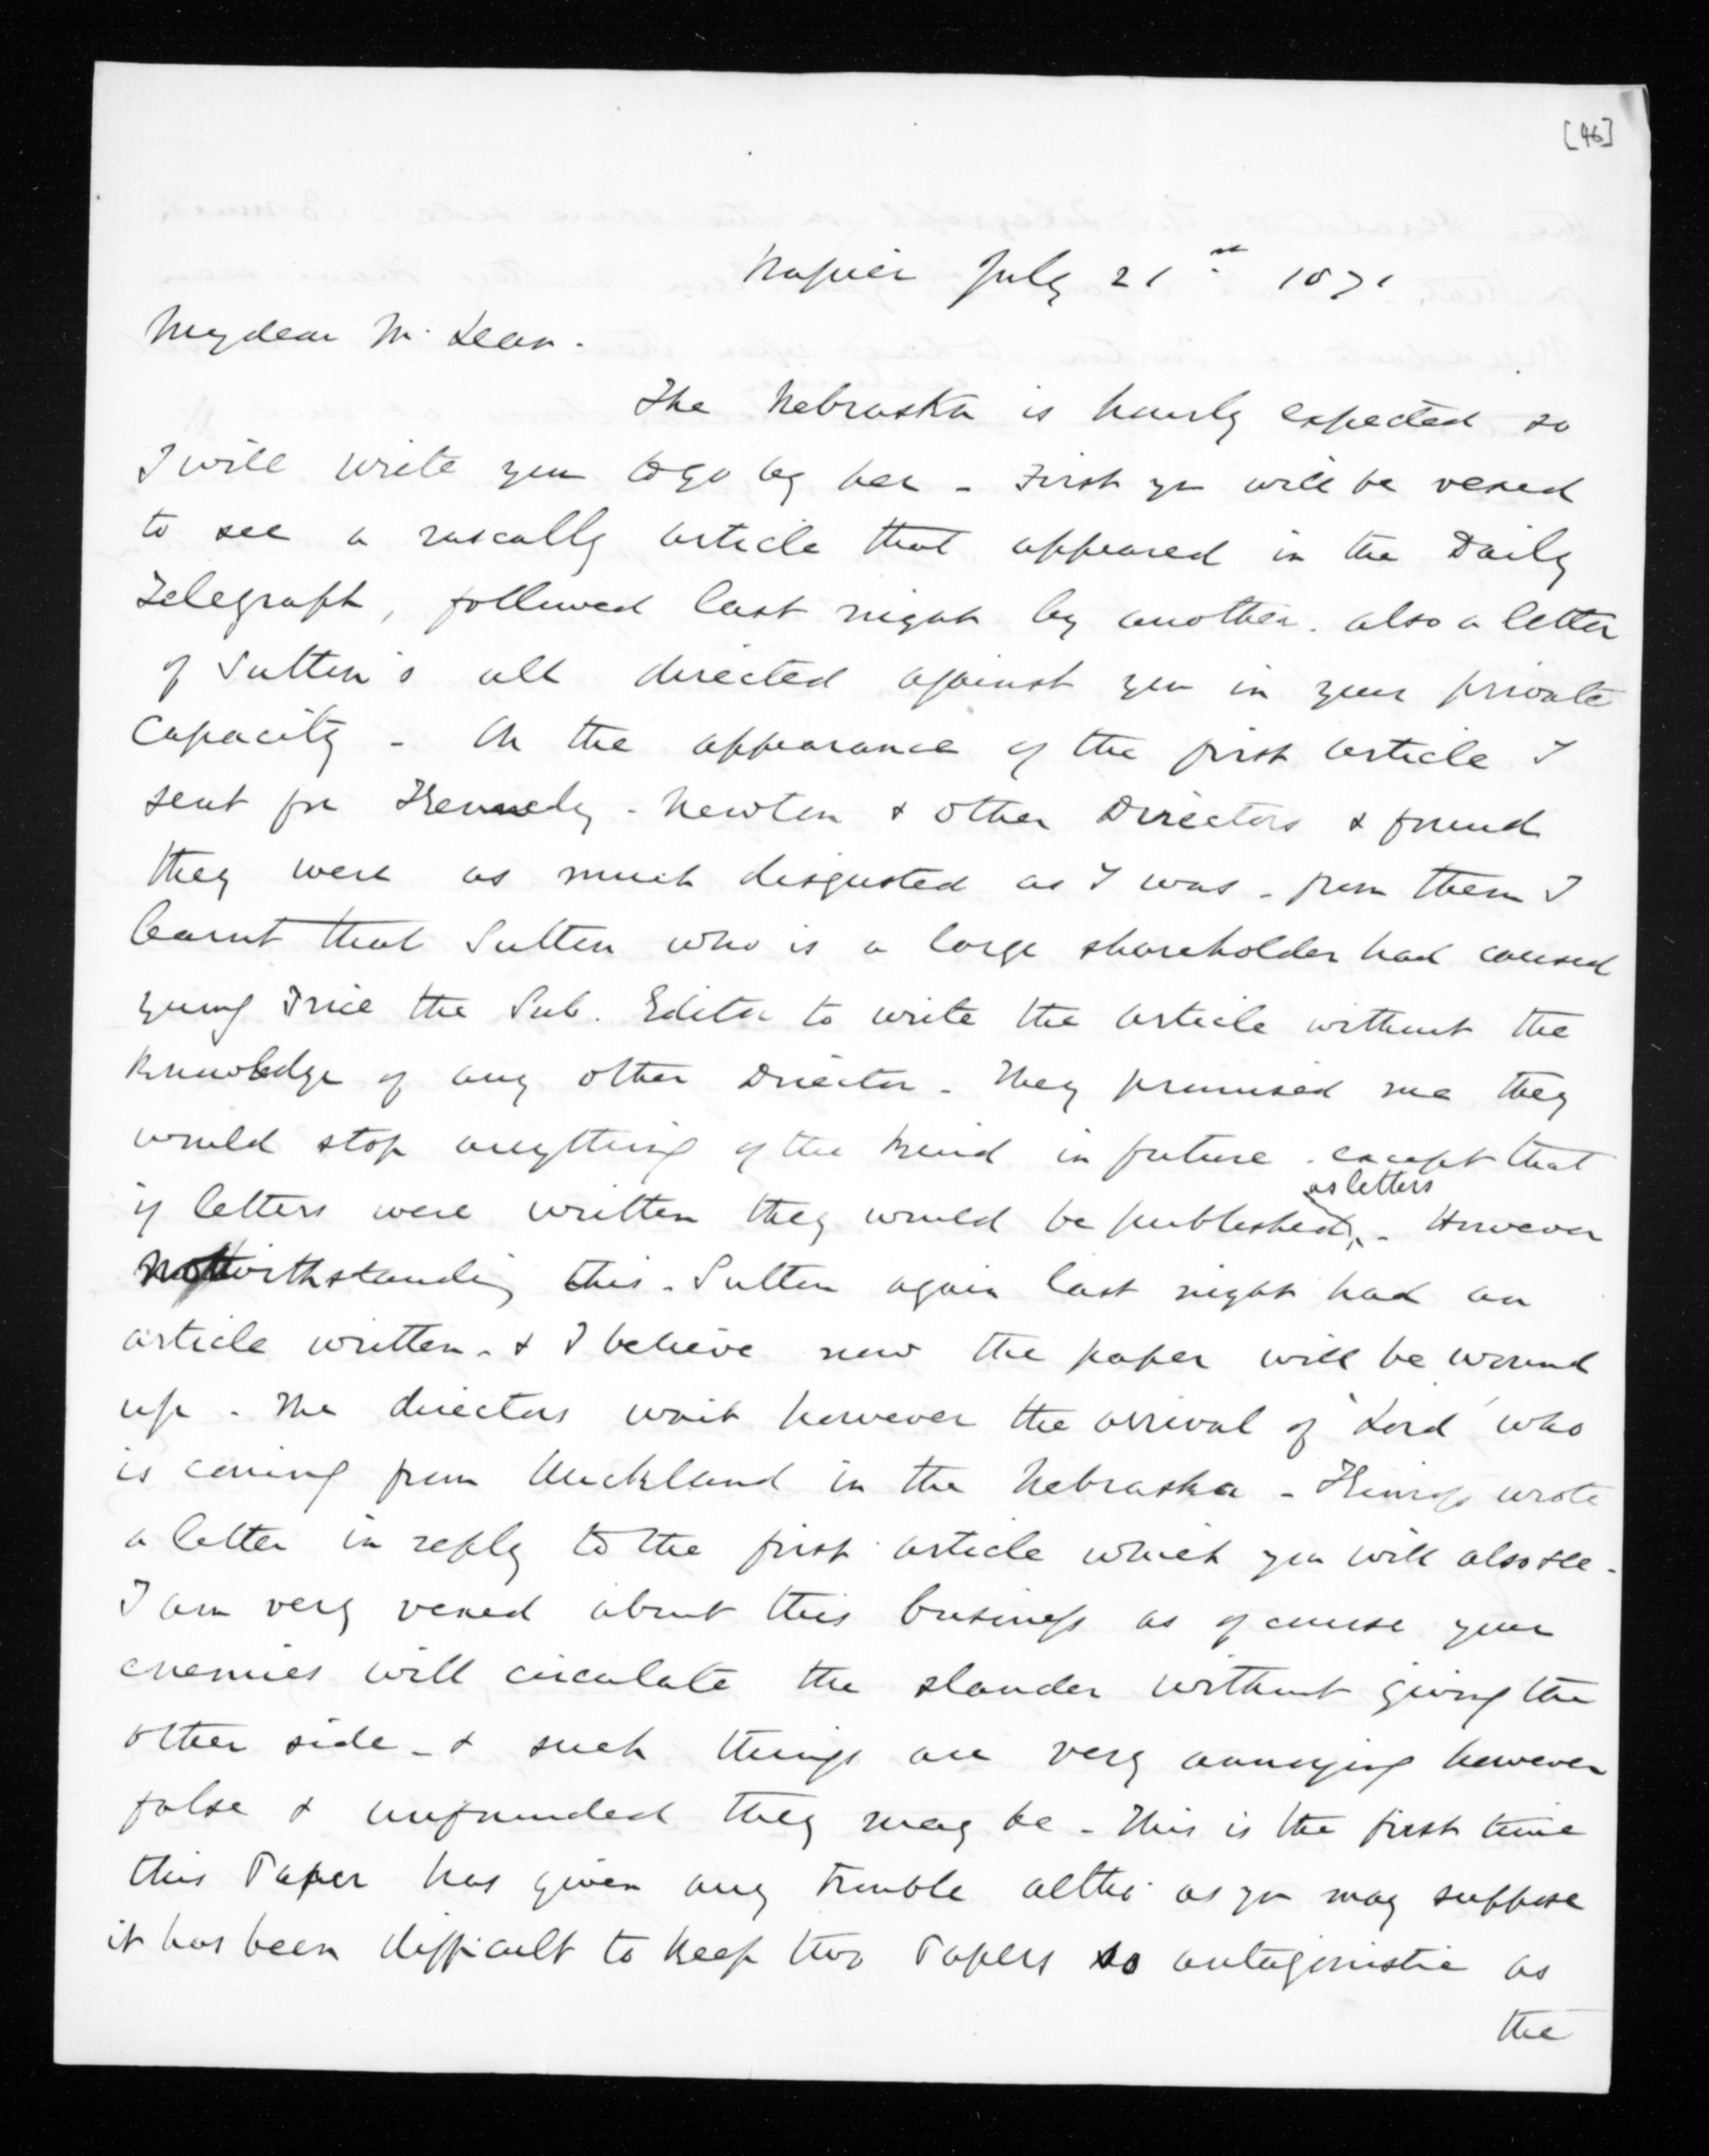 [46]
Napier July 21st 1871
My dear McLean.
The Nebraska is hourly expected so
I will write you to go by her - First you will be vexed
to see a rascally article that appeared in the Daily
Telegraph, followed last night by another. also a letter
of Sutton's all directed against you in your private
capacity - On the appearance of the first article I
sent for Kennedy - Newton & other Directors & found
they were as much disgusted as I was - from them I
learnt that Sutton who is a large shareholder had caused
young Price the Sub. Editor to write the article without the
knowledge of any other Director - They promised me they
would stop anything of the kind in future - except that
if letters were written they would be published as letters - However
Notwithstanding this - Sutton again last night had an
article written - & I believe now the paper will be wound
up - The directors wait however the arrival of 'Lord' who
is coming from Auckland in the Nebraska - Kinross wrote
a letter in reply to the first article which you will also see -
I am very vexed about this business as of course your
enemies will circulate the slander without giving the
other side - & such things are very annoying however
false & unfounded they may be - This is the first time
this Paper has given any trouble altho' as you may suppose
it has been difficult to keep two Papers so antagonistic as
the